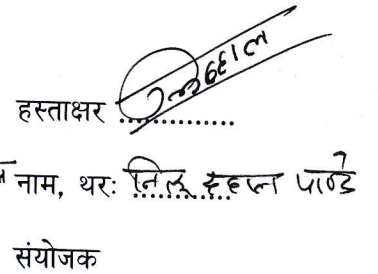 हस्ताक्षर ..............
नाम, थरः निलू दाहाल पाण्डे
संयोजक